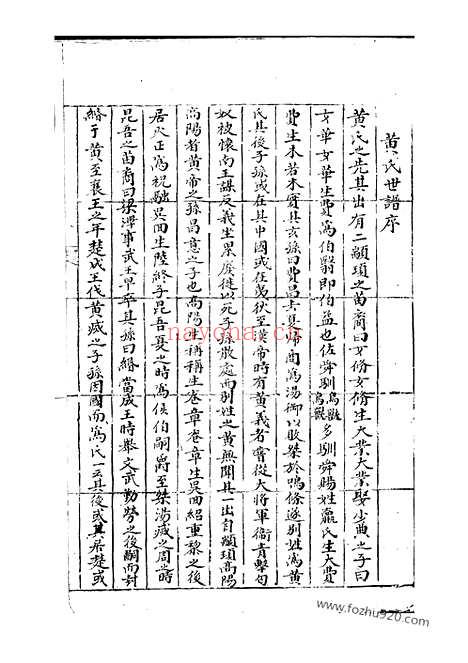 黄氏世譜序
黄氏之先其出有二顓頊之苗裔曰女脩女脩生大業大業娶少典之子曰
女華女華生大費為伯翳即伯益也佐舜馴鳥獸鳥獸多馴舜賜姓嬴氏生大費
費生木若木實其玄孫曰費昌去夏歸商為湯御以敗桀於鳴條遂别姓為黄
氏其後子孫或在其中國或在夷狄至漢帝時有黄義者嘗從大将軍衛青擊匈
奴被懷南王謀反義生累廢徙以死子孫散處而别姓之黄無聞其一出自顓頊高陽
高陽者黄帝之孫昌意之子也高陽生稱稱生卷章卷章生吳回紹重黎之後
居火正為祝融吳回生陸終子昆吾夏之時為侯伯嗣爵至桀湯滅之周之時
昆吾之苗裔曰梁澤事武王早卒其孫曰緡當成王時舉文武勤勞之後嗣而封
緡于黄至襄王之年楚成王伐黄滅之子孫因國而為氏一云其後或其居楚或
nayona.cn
www.fozhu920.com